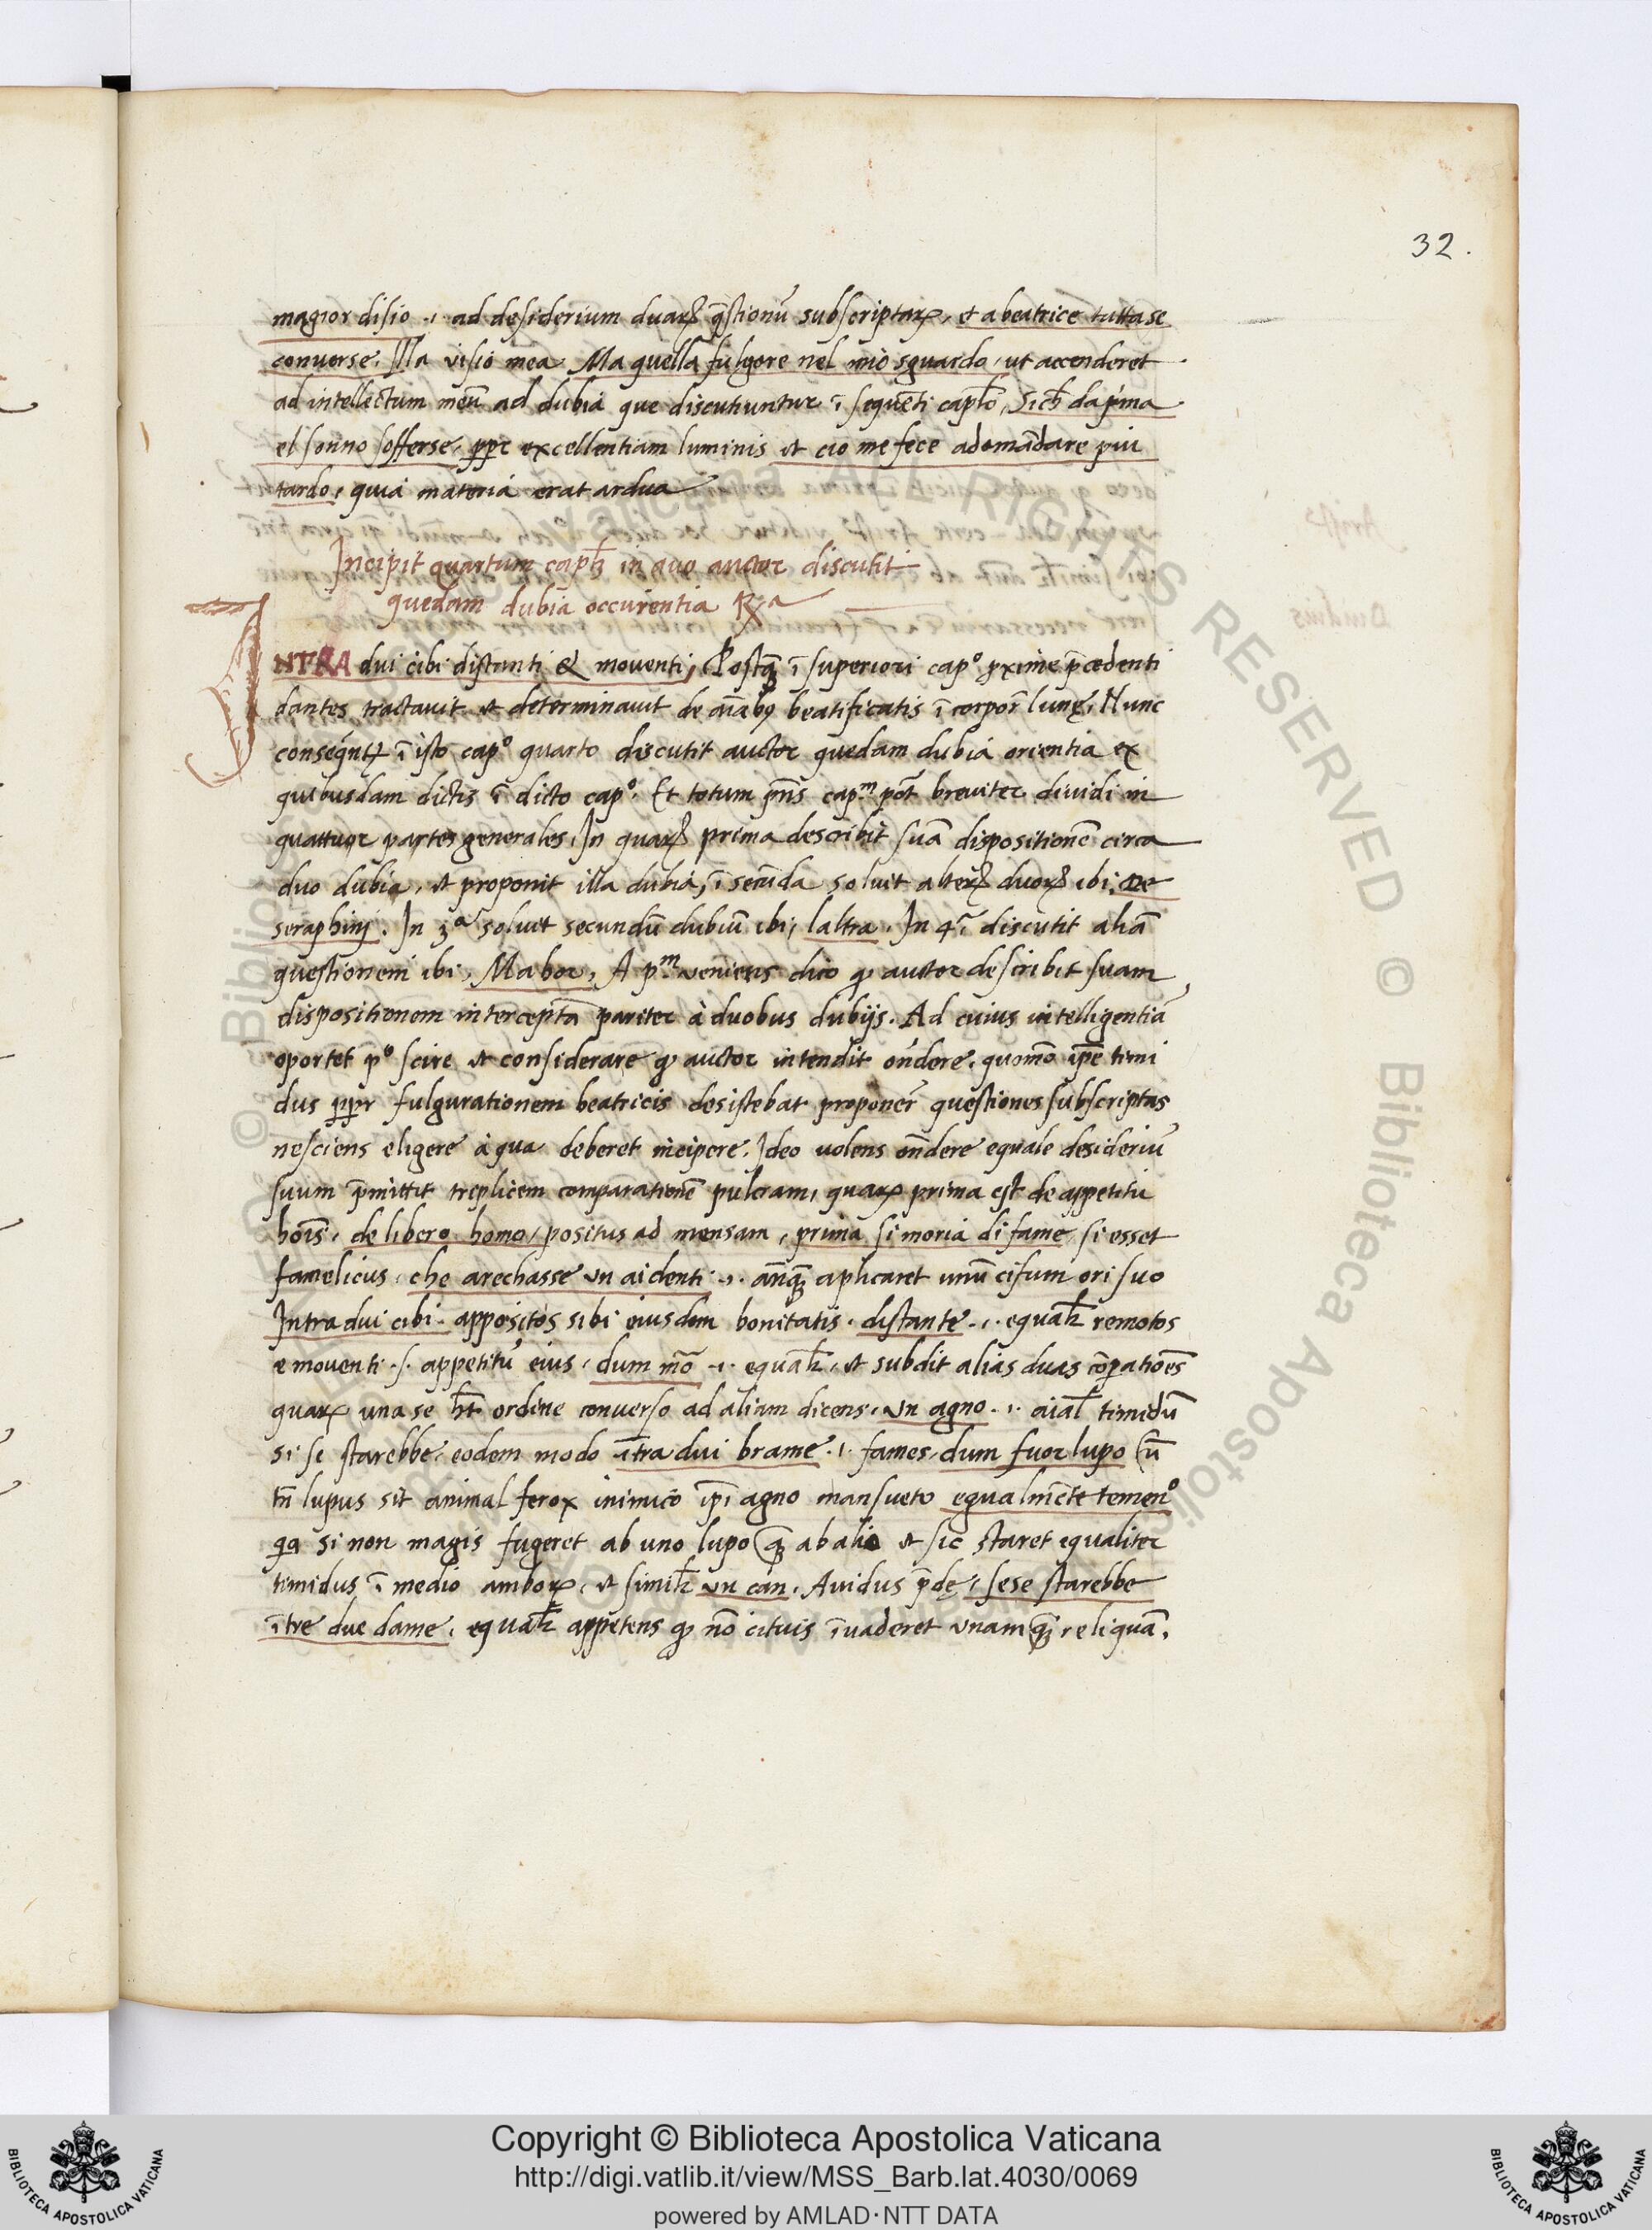 32.
magior disio .i. ad desiderium duaꝝ q̄stionū subscriptaꝝ, et a beatrice tutta se
converse. Illa visio mea. Ma quella fulgore nel mio sguardo, ut accenderet
ad intellectum meū ad dubia que discutiuntur ī sequēti capl̄o, Sich̄ da p̍ma
el sonno sofferse, ꝓpt̄ excellentiam luminis et cio me fece a domādare piu
tardo, quia materia erat ardua
Incipit quartum capl̄ꝫ in quo auctor discutit
quedam dubia occurentia Rx.a
INTRA dui cibi distanti & moventi, Postq̄ꝫ ī superiori cap.º ꝓxime p̄cedenti
dantes tractavit et determinavit de aīabꝰ beatificatis ī corpor̄ lunę. Nunc
conseq̄nt̄ ī isto cap.º quarto discutit auctor quedam dubia orientia ex
quibusdam dictis ī dicto cap.º. Et totum p̄n̄s cap.m pōt breviter dividi in
quattuor partes generales. In quaꝝ prima describit suā dispositionē circa
duo dubia, et proponit illa dubia, ī secūda solvit alteꝝ duoꝝ ibi, De
seraphinj. In 3a solvit secundū dubiū ibi, laltra. In 4ī discutit aliā
questionem ibi, Ma hor, A p.m veniens dico ꝙ auctor describit suam
dispositionem interceptā pariter à duobus dubijs. Ad cuius intelligentiā
oportet p.º scire et considerare ꝙ auctor intendit on̄dere, quomō ipē timi
dus ꝓpt̄ fulgurationem beatricis desistebat proponer̄ questiones subscriptas
nesciens eligere à qua deberet incipere. Ideo volens on̄dere equale desideriū
suum p̄mittit treplicem comparationē pulcram, quaꝝ prima est de appetitu
hoīs, de libero homo, positus ad mensam, prima si moria di fame si esset
famelicus, che arechasse un ai denti .i. an̄q̄ꝫ aplicaret unū cifum ori suo
Intra dui cibi. appositos sibi eiusdem bonitatis. distante .i. equal̄r remotos
e moventi .s. appetitū eius, dum mō .i. equal̄r, et subdit alias duas cōparatioēs
quaꝝ una se h̄t ordine converso ad aliam dicens, un agno .i. aial̄ timidū
si se starebbe, eodem modo ītra dui brame .i. fames, dum fuor lupo cū
tn̄ lupus sit animal ferox inimicō ip̄ī agno mansueto egualmēte temen.º
qa si non magis fugeret ab uno lupo q̄ꝫ ab alio et sic staret equaliter
timidus ī medio amboꝝ, et simil̄r un can. Avidus p̄dę, sese starebbe
ītre due dame, equal̄r appetens ꝙ nō cituis īvaderet unam q̄ꝫ reliquā.
© Biblioteca Apostolica Vaticana ALL RIGHTS RESERVED © Biblioteca Apostolica
BIBLIOTECA APOSTOLICA VATICANA
Copyright © Biblioteca Apostolica Vaticana
http://digi.vatlib.it/view/MSS_Barb.lat.4030/0069
powered by AMLAD·NTT DATA
BIBLIOTECA APOSTOLICA VATICANA